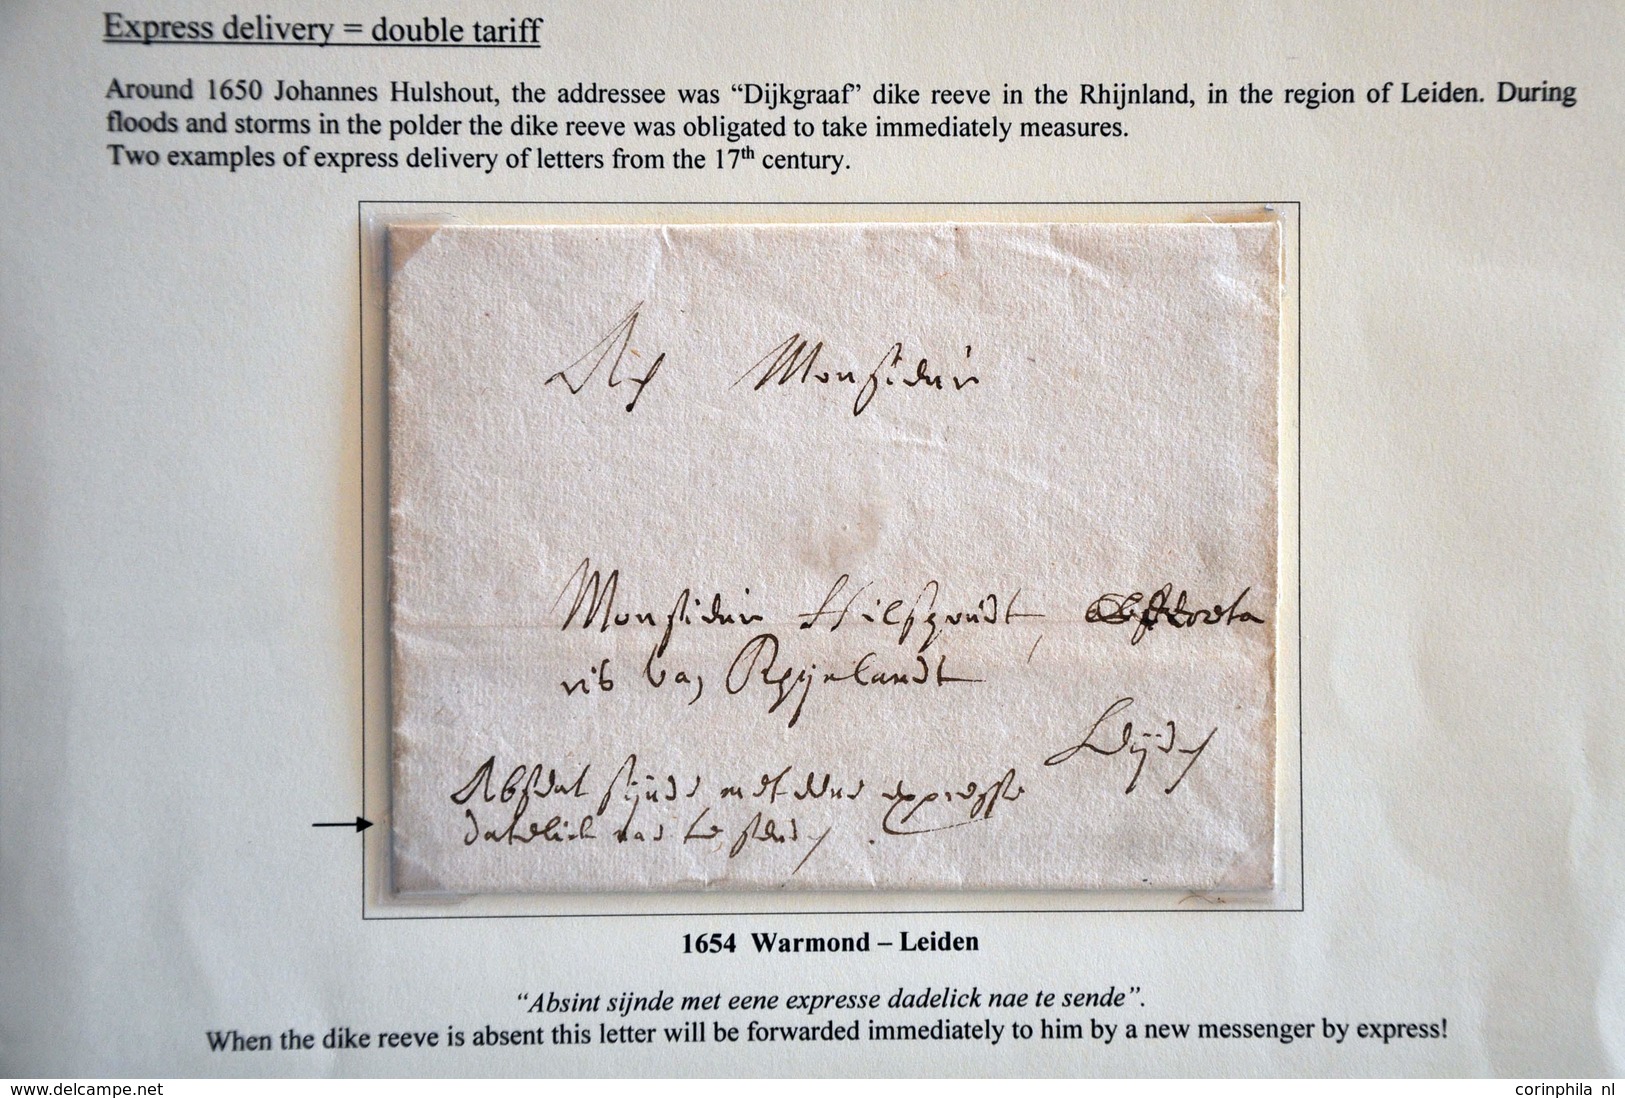 Express delivery = double tariff
Around 1650 Johannes Hulshout, the addressee was “Dijkgraaf” dike reeve in the Rhijnland, in the region of Leiden. During
floods and storms in the polder the dike reeve was obligated to take immediately measures.
Two examples of express delivery of letters from the 17th century.
Monsieur
Monsieur
van Rhijnlandt
Leijden
Absent sijnde met eene expresse
datelick nae te senden.
1654 Warmond – Leiden
“Absint sijnde met eene expresse dadelick nae te sende”.
When the dike reeve is absent this letter will be forwarded immediately to him by a new messenger by express!
www.delcampe.net
corinphila nl